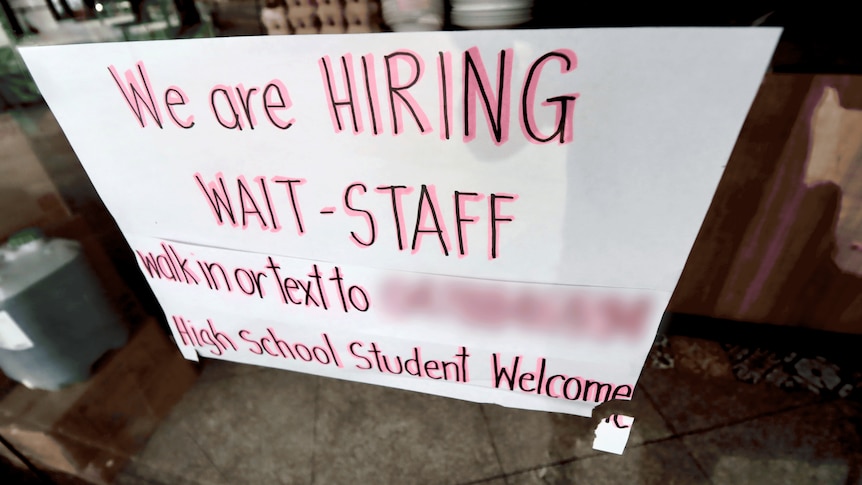 We are HIRING
WAIT-STAFF
walk in or text to
High School Student Welcome